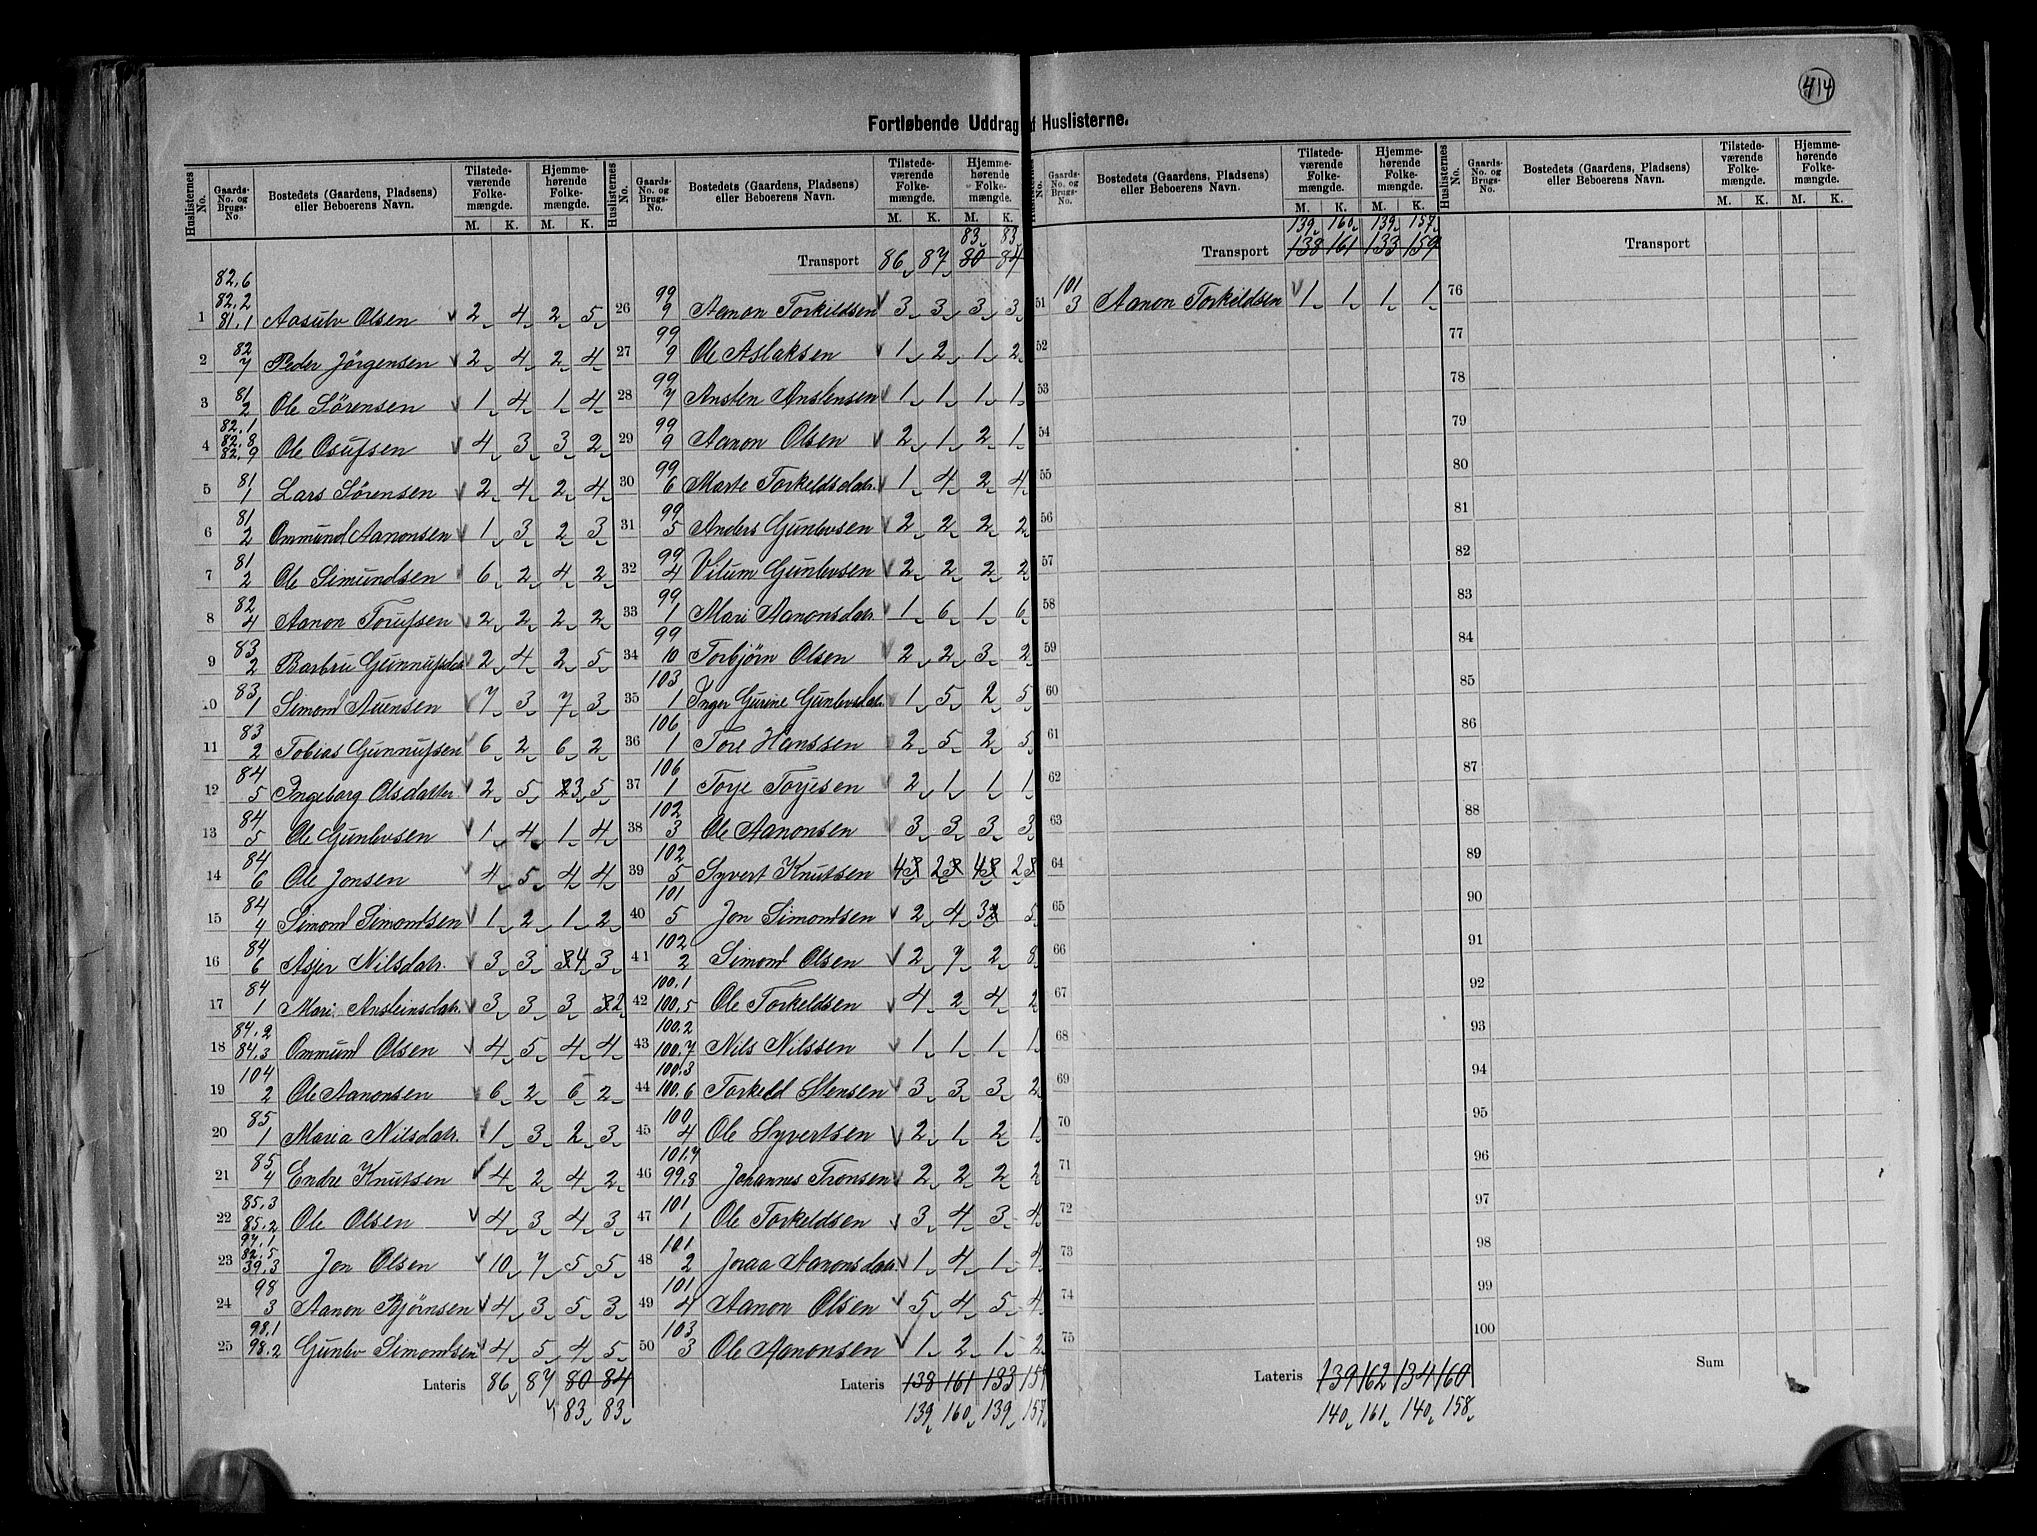 414
Fortløbende Uddrag af Huslisterne.
Huslisternes No. | Gaards-No. og Brugs-No. | Bostedets (Gaardens, Pladsens) eller Beboerens Navn. | Tilstedeværende Folkemængde. M. K. | Hjemmehørende Folkemængde. M. K.
1 82,6 82,2 81,1 Aasulv Olsen 2 4 2 5
2 82 7 Peder Jörgensen 2 4 2 4
3 81 2 Ole Sörensen 1 4 1 4
4 82,1 82,8 82,9 Ole Osufsen 4 3 3 2
5 81 1 Lars Sörensen 2 4 2 4
6 81 2 Ommund Aanonsen 1 3 2 3
7 81 2 Ole Simundsen 6 2 4 2
8 82 4 Aanon Torufsen 2 2 2 2
9 83 2 Barbru Gunnufsdatr 2 4 2 5
10 83 1 Simond Auensen 7 3 7 3
11 83 2 Tobias Gunnufsen 6 2 6 2
12 84 5 Ingeborg Olsdatter 2 5 3 5
13 84 5 Ole Gunlevsen 1 4 1 4
14 84 6 Ole Jonsen 4 5 4 4
15 84 4 Simond Simondsen 1 2 1 2
16 84 6 Asjer Nilsdatr. 3 3 3 4 3
17 84 1 Mari Ansteinsdatr. 3 3 3 3 2
18 84,2 84,3 Ommund Olsen 4 5 4 4
19 104 2 Ole Aanonsen 6 2 6 2
20 85 1 Maria Nilsdatr. 1 3 2 3
21 85 4 Endre Knutsen 4 2 4 2
22 85,3 85,2 Ole Olsen 4 3 4 3
23 97,1 82,5 39,3 Jon Olsen 10 7 5 5
24 98 3 Aanon Bjørnsen 4 3 5 3
25 98,1 98,2 Gunlev Simondsen 4 5 4 5
Lateris 86 87 80 84
83 83
Huslisternes No. | Gaards-No. og Brugs-No. | Bostedets (Gaardens, Pladsens) eller Beboerens Navn. | Tilstedeværende Folkemængde. M. K. | Hjemmehørende Folkemængde. M. K.
83 83
Transport 86 87 80 84
26 99 9 Aanon Torkildsen 3 3 3 3
27 99 9 Ole Aslaksen 1 2 1 2
28 99 7 Ansten Anstensen 1 1 1 1
29 99 9 Aanon Olsen 2 1 2 1
30 99 6 Marte Torkeldsdatr. 1 4 2 4
31 99 5 Anders Gunlevsen 2 2 2 2
32 99 4 Vilum Gunlevsen 2 2 2 2
33 99 1 Mari Aanonsdatr 1 6 1 6
34 99 10 Torbjørn Olsen 2 2 3 2
35 103 1 Inger Gurine Gunlevsdatr. 1 5 2 5
36 106 1 Tore Hanssen 2 5 2 5
37 106 1 Toje Tojesen 2 1 1 1
38 102 3 Ole Aanonsen 3 3 3 3
39 102 5 Syvert Knutsen 4 3 2 3 4 3 2 3
40 101 5 Jon Simondsen 2 4 3 2 5
41 102 2 Simond Olsen 2 7 2 8
42 100,1 100,5 Ole Torkeldsen 4 2 4 2
43 100,2 100,7 Nils Nilssen 1 1 1 1
44 100,3 100,6 Torkeld Stensen 3 3 3 2
45 100 4 Ole Syvertsen 2 1 2 1
46 101,7 99,8 Johannes Tronsen 2 2 2 2
47 101 1 Ole Torkeldsen 3 4 3 4
48 101 2 Joraa Aanonsdatr. 1 4 1 4
49 101 4 Aanon Olsen 5 4 5 4
50 103 3 Ole Aanonsen 1 2 1 2
Lateris 138 161 133 159
139 160 139 157
Huslisternes No. | Gaards-No. og Brugs-No. | Bostedets (Gaardens, Pladsens) eller Beboerens Navn. | Tilstedeværende Folkemængde. M. K. | Hjemmehørende Folkemængde. M. K.
139 160 139 157
Transport 138 161 133 159
51 101 3 Aanon Torkeldsen 1 1 1 1
52
53
54
55
56
57
58
59
60
61
62
63
64
65
66
67
68
69
70
71
72
73
74
75
Lateris 139 162 134 160
140 161 140 158
Huslisternes No. | Gaards-No. og Brugs-No. | Bostedets (Gaardens, Pladsens) eller Beboerens Navn. | Tilstedeværende Folkemængde. M. K. | Hjemmehørende Folkemængde. M. K.
Transport
76
77
78
79
80
81
82
83
84
85
86
87
88
89
90
91
92
93
94
95
96
97
98
99
100
Sum